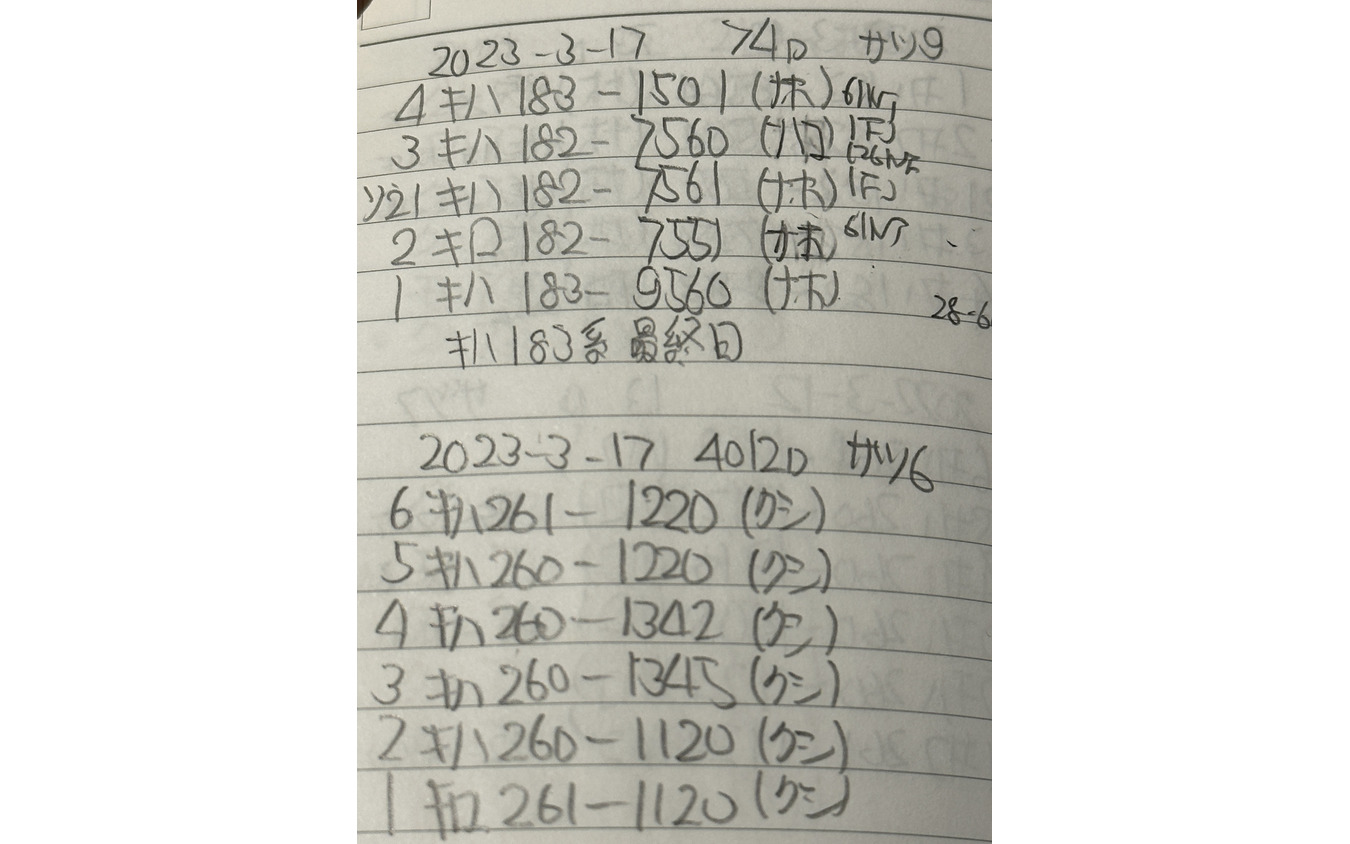 2023-3-17 74D サツ9
4 キハ183-1501 (ナホ) 61NT
3 キハ182-7560 (ハコ) 1F
ソ21 キハ182-7561 (ナホ) 1F
2 キロ182-7551 (ナホ) 61NT
1 キハ183-9560 (ナホ)
28-6
キハ183系 最終日
2023-3-17 4012D サツ6
6 キハ261-1220 (クシ)
5 キハ260-1220 (クシ)
4 キハ260-1342 (クシ)
3 キハ260-1345 (クシ)
2 キハ260-1120 (クシ)
1 キロ261-1120 (クシ)